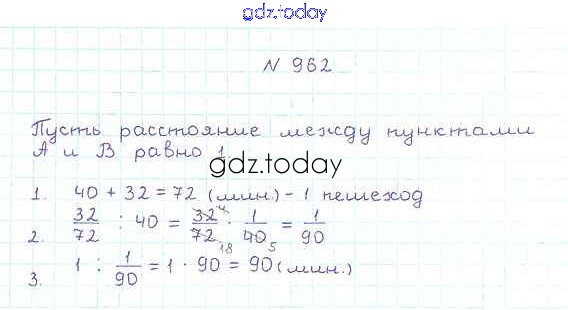 gdz.today
N 962
Пусть расстояние между пунктами
А и В равно 1
gdz.today
1. 40 + 32 = 72 (мин.) - 1 пешеход
2. 32/72 : 40 = 32/72 · 1/40 = 1/90
4 18 5
3. 1 : 1/90 = 1 · 90 = 90 (мин.)